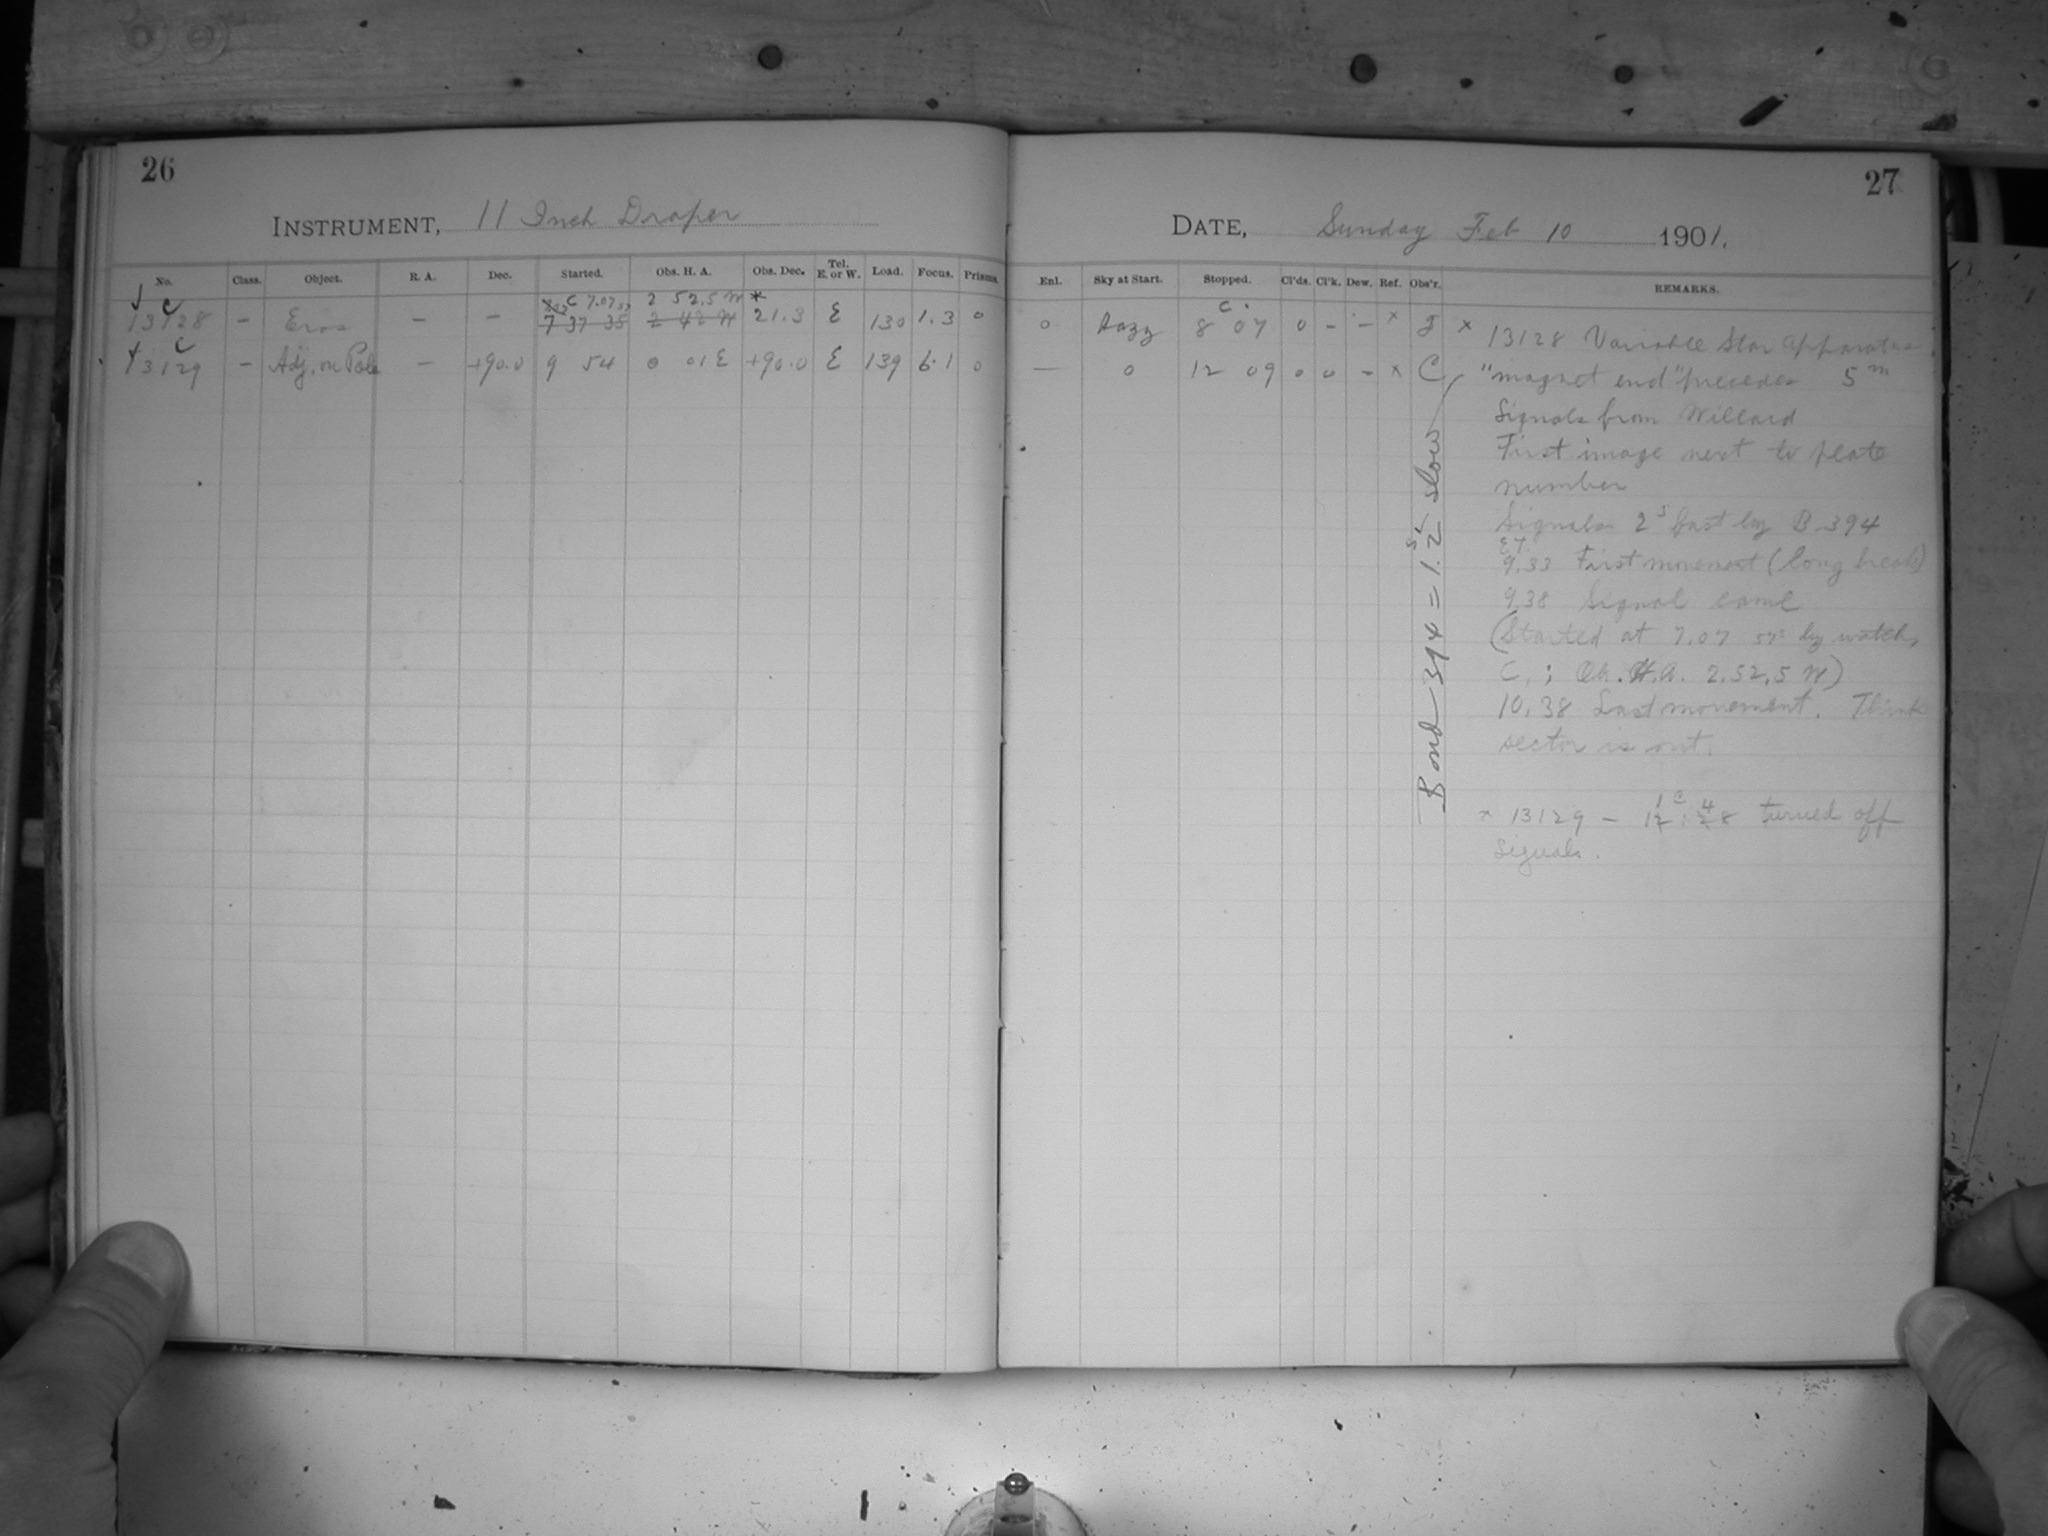 26
INSTRUMENT, 11 Inch Draper
No. Class. Object. R. A. Dec. Started. Obs. H. A. Obs. Dec. Tel. E. or W. Load. Focus. Prisms.
C 7.07 57 2 52.5 W *
13128 – Eros – – 7 37 35 2 42 W 21.3 E 130 1.3 0
13129 – Adj. on Pole – +90.0 9 54 0 01 E +90.0 E 139 6.1 0
27
DATE, Sunday Feb 10 1901.
Enl. Sky at Start. Stopped. Cl'ds. Cl'k. Dew. Ref. Obs'r. REMARKS.
0 Hazy 8 07 0 – – x J
— 0 12 09 0 0 – x C
x 13128 Variable Star Apparatus
"magnet end" precedes 5m
Signals from Willard
First image next to plate
number
Signals 2s fast by B 394
E.T.
9.33 First movement (long break)
9.38 Signal came
(Started at 7.07 57s by watch,
C.; Ob. H.A. 2.52.5 W)
10.38 Last movement. Think
sector is out.
x 13129 – turned off
signals.
Bond 394 = 1.2s slow